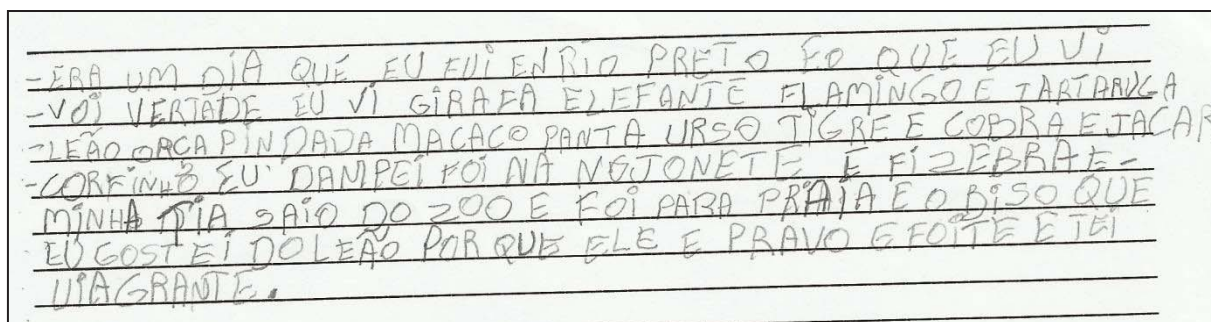 -ERA UM DIA QUE EU FUI EN RIO PRETO EO QUE EU VI
-VOI VERTADE EU VI GIRAFA ELEFANTE FLAMINGO E TARTARUGA
-LEÃO ORCA PINDADA MACACO PANTA URSO TIGRE E COBRA E JACAR
-CORFINHO EU DAMPEI FOI NA E FI ZEBRA E-
MINHA TIA SAIO DO ZOO E FOI PARA PRAIA E O BISO QUE
EU GOSTEI DO LEÃO POR QUE ELE E PRAVO E FOITE E TEI
UIA GRANTE.